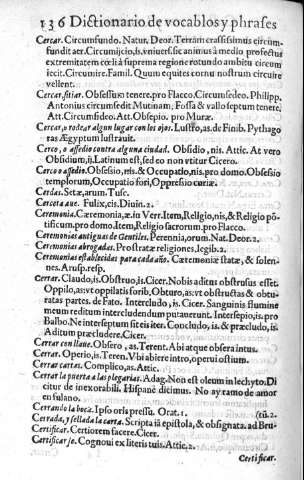 136 Dictionario de vocablos y phrases
Cercar. Circumfundo. Natur. Deor. Terram crasissimus circum-
fundit aer. Circumijcio, is, vniuersũ animus à medio profectus
extremitatem cœli à suprema regione rotundo ambitu circum
iecit. Circumire. Famil. Quum equites cornu nostrum circuire
vellent.
Cercar, sitiar. Obsessum tenere. pro Flacco. Circumsedeo. Philipp.
Antonius circumsedit Mutinam. Fossa & vallo septum tenere,
Att. Circumsideo. Att. Obsepio. pro Muræ.
Cercar, o rodear algun lugar con los ojos. Lustro, as. de Finib. Pythago
ras Ægyptum lustrauit.
Cerco, o assedio contra alguna ciudad. Obsidio, nis. Attic. At vero
Obsidium, ij. Latinum est, sed eo non vtitur Cicero.
Cerco o assedio. Obsessio, nis. & Occupatio, nis. pro domo. Obsessio
templorum, Occupatio fori, Oppressio curiæ.
Cerdas. Setæ, arum. Tusc.
Felix, cis. Diuin. 2.
Ceremonia. Cæremonia, æ. in Verr. Item, Religio, nis, & Religio põ-
tificum. pro domo. Item, Religio sacrorum. pro Flacco.
Ceremonias antiguas de Gentiles. Perennia, orum. Nat. Deor. 2.
Ceremonias abrogadas. Prostratæ religiones. legib. 2.
Ceremonias establecidas para cada año. Cæremoniæ statæ, & solen-
nes. Arusp. resp.
Cerrar. Claudo, is. Obstruo, is. Cicer. Nobis aditus obstrusus esset.
Oppilo, as. vt oppilatis forib. Obturo, as. vt obstructas & obtu-
ratas partes. de Fato. Intercludo, is. Cicer. Sanguinis flumine
meum reditum intercludendum putauerunt. Intersepio, is. pro
Balbo. Ne interseptum sit eis iter. Concludo, is. & præcludo, is.
Aditum præcludere. Cicer.
Cerrar con llaue. Obsero, as. Terent. Abi atque obsera intus.
Cerrar. Operio, is. Teren. Vbi abiere intro, operui ostium.
Cerrar cartas. Complico, as. Attic.
Cerrar la puerta a las plegarias. Adag. Non est oleum in lechyto. Di
citur de inexorabili. Hispane dicimus. No ay ramo de amor
en fulano.
Cerrando la boca. Ipso oris pressu. Orat. 1. (tũ. 2.
Cerrada, y sellada la carta. Scripta iã epistola, & obsignata. ad Bru-
Certificar. Certiorem facere. Cicer.
Certificarse. Cognoui ex literis tuis. Attic. 2.
Certificar.